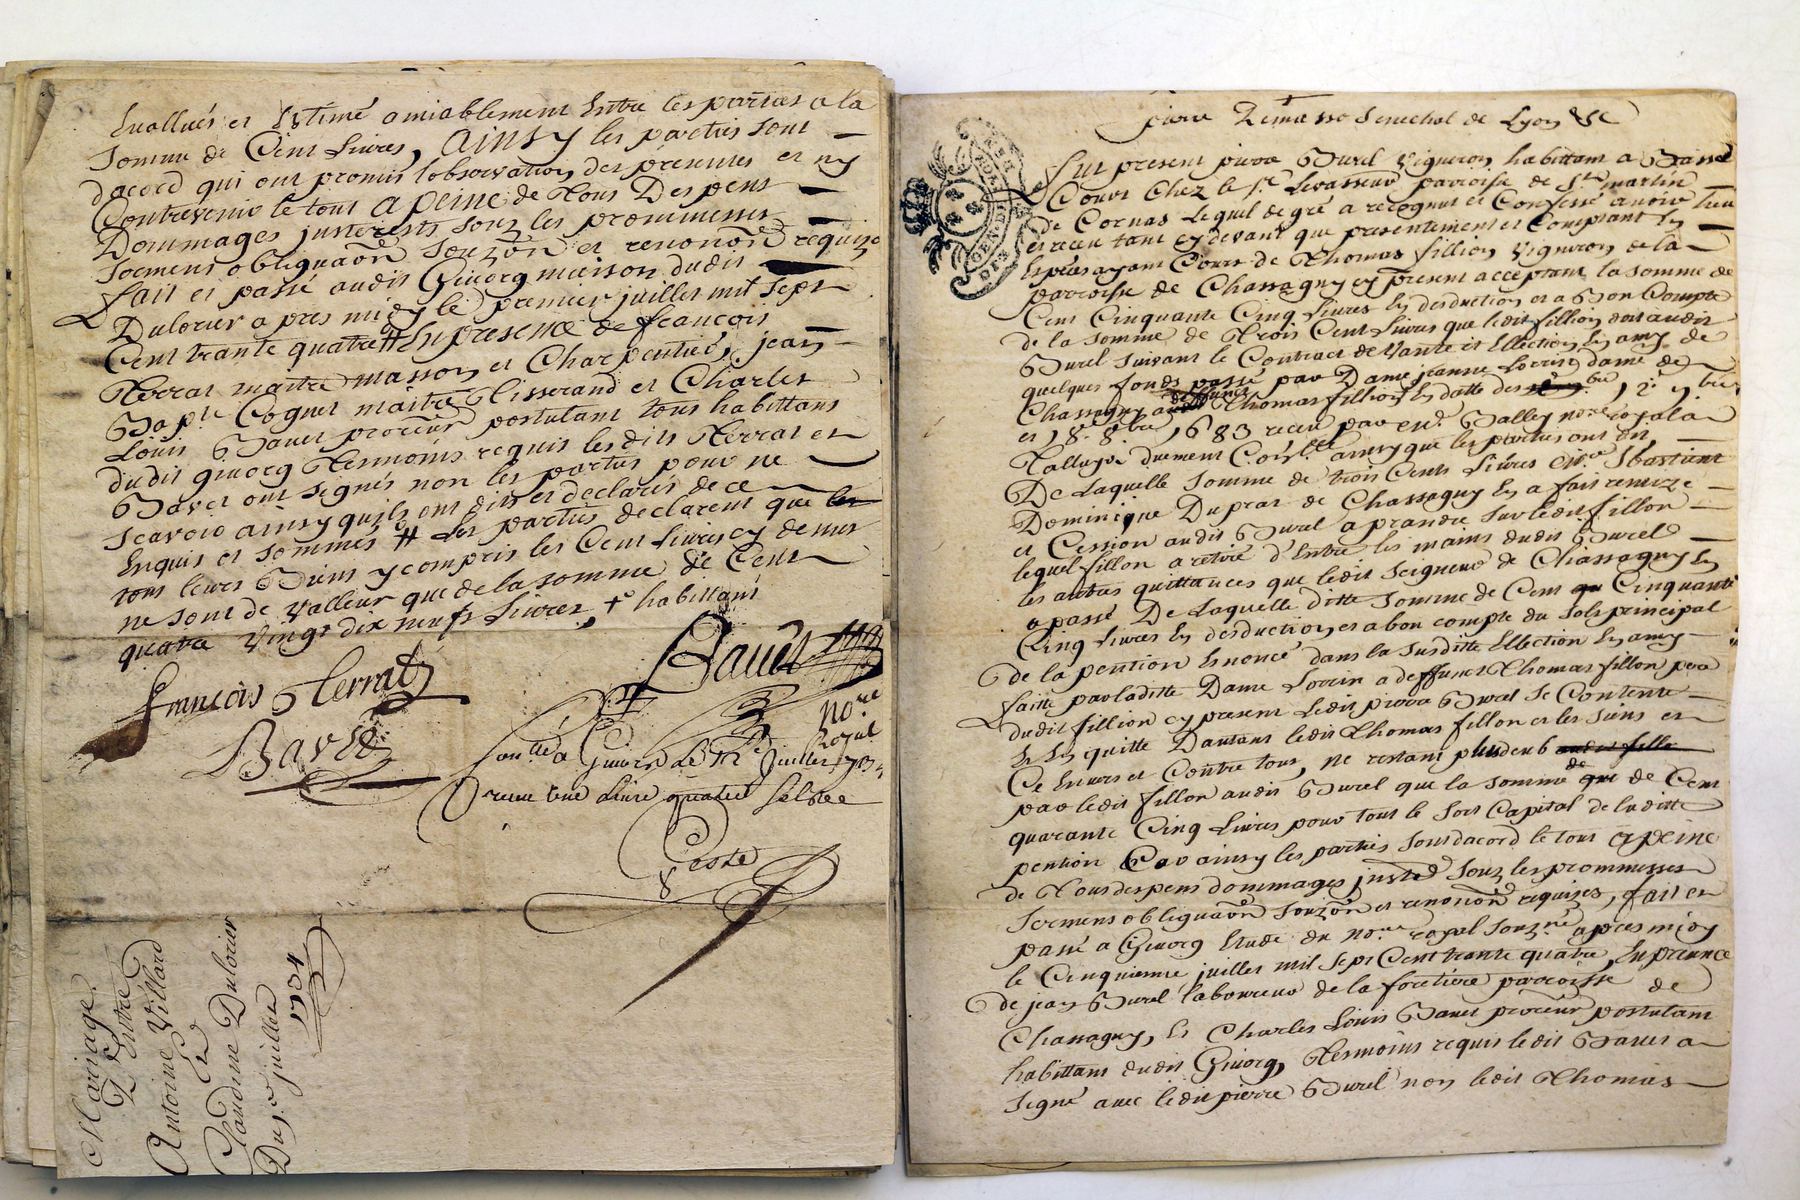 Evallués et Estimé amiablement Entre les parties a la
somme de Cent livres, AINSY les parties sont
dacord qui ont promis l'observation des présentes et ny
Contrevenir le tout A PEINE de Tous Despens
Dommages jnterests souz les prommesses
sermens obliguãõn souzõn et renonõn requize
fait et passé audit Givorg maison dudit
Dulorier apres midy le premier juillet mil sept
Cent trante quatre En presence de françois
Terrat maitre masson et Charpentier, jean
Bap.te Coguet maitre Tisserand et Charles
Louis Bavet procureur postulant tous habittans
dudit givorg Tesmoins requis lesdits Terrat et
Bavet ont signés non les parties pour ne
scavoir ainsy quils ont dit et declarés de ce
Enquis et sommés # les parties declarent que les
tous leurs Biens y compris les Cent livres cy dessus
ne sont de valleur que de la somme de Cent
quatre vingt dix neufs livres, + habittans
françois Terrat
Bavet
Bavet
no.re
Royal
Con.llé a Givors Le 12e Juillet 1734
receu une Livre quatre sols
Coste
Mariage
Entre
Antoine Villard
Et
Claudine Dulorier
Du 1.er juillet
1734
pierre Senechal de Lyon &c
GEN. DE LYON
fut present pierre Burel vigneron habittant a Basse
Court Chez le s.r Levasseur paroisse de S.t martin
de Cornas Lequel de gré a recognus et Confessé avoir heu
et receu tant cy devant que presentement et Comptant En
Espèces ayant Cours de Thomas fillion vigneron de la
parroisse de Chassagny cy present acceptant la somme de
Cent Cinquante Cinq livres En desduction et a Bon Compte
de la somme de Trois Cent livres que ledit fillion doit audit
Burel suivant le Contract de Vante et Ellection En amy de
quelques fonds passé par Dame jeanne Lorrin dame de
Chassagny a deffunct Thomas fillion En datte des
et 18.e 8.bre 1683 receu par Balley no.re royal a
Talluyé duement ainsy que les parties ont dit,
De Laquelle somme de trois Cents livres Sbastient
Dominique Duprat de Chassagny En a fait remize
et Cession audit Burel a prandre sur ledit fillon
lequel fillon a retiré d'Entre les mains dudit Burel
les autres quittances que ledit seigneur de Chassagny En
a passé De Laquelle ditte somme de Cent Cinquante
Cinq livres En desduction et a bon compte du sols principal
de la pention Enoncé dans la susditte Ellection En amy
faitte par laditte Dame Lorrin a deffunct Thomas fillon pere
dudit fillion cy present Ledit pierre Burel se Contente
Et En quitte Dautant ledit Thomas fillon et les siens et
Ce Envers et Contre tous, ne restant plus deub audit fillon
par ledit fillon audit Burel que la somme de que de Cent
quarante Cinq livres pour tout le sort Capital de laditte
pention Car ainsy les parties sont dacord le tout A PEINE
de Tous despens dommages jnsts souz les prommesses
sermens obliguãõn souzõn et renonõn requizes, fait et
passé a Givorg Etude du no.re royal souz.né apres midy
le Cinquieme juillet mil sept Cent trante quatre, En presence
de jean Burel laboureur de la foretiere parroisse de
Chassagny, Et Charles Louis Bavet procureur postulant
habittant dudit Givorg, Tesmoins requis ledit Bavet a
signé avec ledit pierre Burel non ledit Thomas